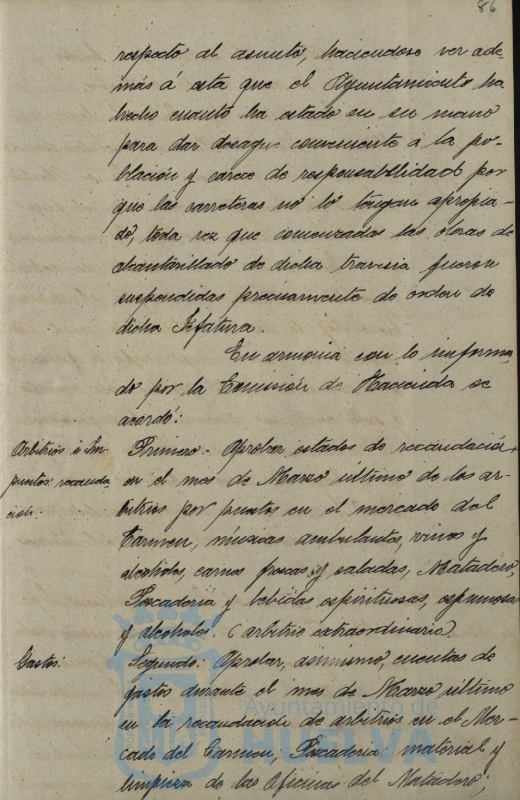 86
respecto al asunto, haciendose ver ade-
más á esta que el Ayuntamiento ha
hecho cuanto ha estado en su mano
para dar desague conveniente á la po-
blación y carece de responsabilidad por
que las carreteras no lo tengan apropia-
do, toda vez que comenzadas las obras de
alcantarillado de dicha travesia fueron
suspendidas precisamente de orden de
dicha Jefatura.
En armonia con lo informa-
do por la Comisión de Hacienda se
acordó:
Arbitrios é Im-
puestos: recauda-
ción.
Primero. Aprobar estados de recaudación
en el mes de Marzo último de los ar-
bitrios por puestos en el mercado del
Carmen, músicas ambulantes, vinos y
alcoholes, carnes frescas y saladas, Matadero,
Pescaderia y bebidas espirituosas, espumosas
y alcoholes. (arbitrio extraordinario)
Gastos:
Segundo: Aprobar, asimismo, cuentas de
gastos durante el mes de Marzo último
en la recaudación de arbitrios en el Mer-
cado del Carmen; Pescaderia: material y
limpieza de las Oficinas del Matadero;
Ayuntamiento de
HUELVA